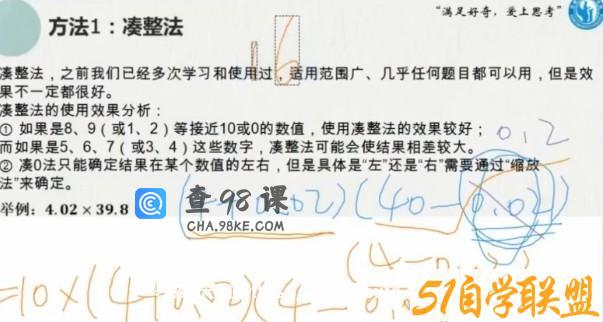 "满足好奇，爱上思考"
方法1：凑整法
16
凑整法，之前我们已经多次学习和使用过，适用范围广、几乎任何题目都可以用，但是效
果不一定都很好。
凑整法的使用效果分析：
① 如果是8、9（或1、2）等接近10或0的数值，使用凑整法的效果较好；
0,2
而如果是5、6、7（或3、4）这些数字，凑整法可能会使结果相差较大。
② 凑0法只能确定结果在某个数值的左右，但是具体是“左”还是“右”需要通过“缩放
法”来确定。
举例：4.02×39.8
(4+0.02)(40-0.02)
查98课
CHA.98KE.COM
(4-0.
=10×(4+0.02)(4-0.0
51自学联盟